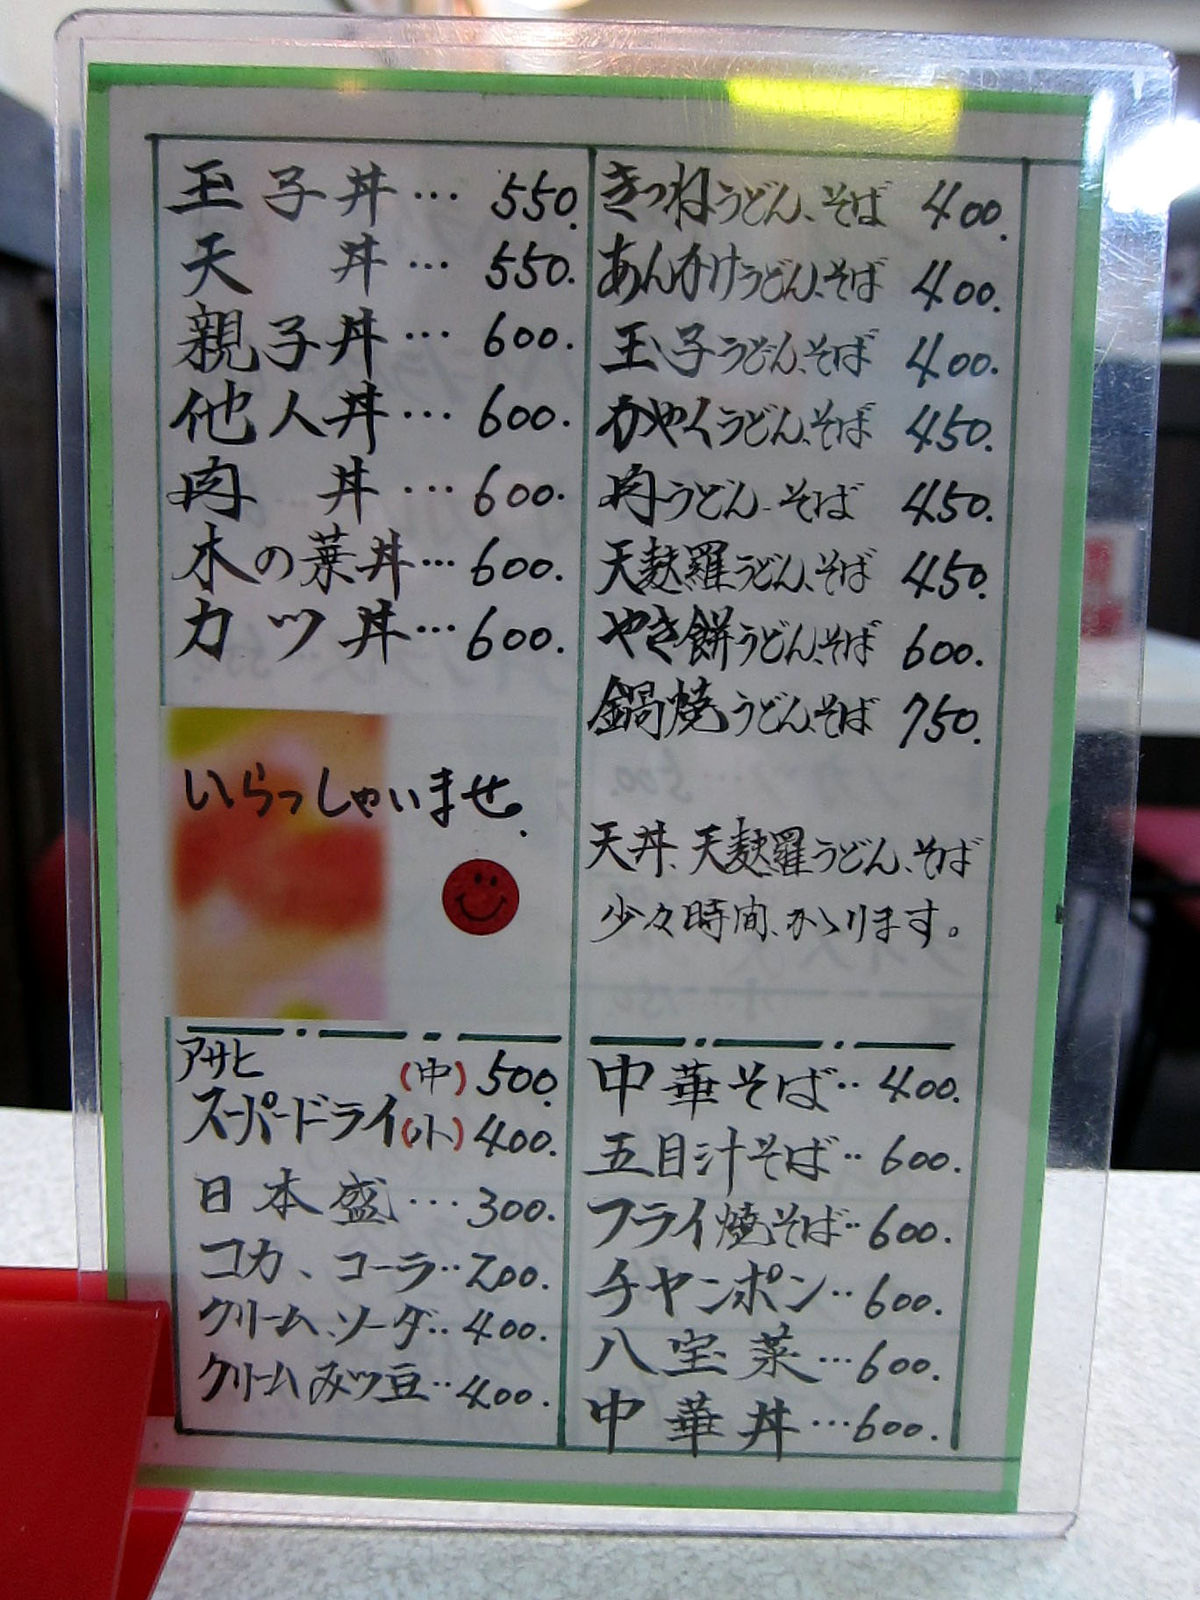 玉子丼… 550.
天 丼… 550.
親子丼… 600.
他人丼… 600.
肉 丼… 600.
木の葉丼… 600.
カツ丼… 600.
いらっしゃいませ.
アサヒ
スーパードライ (中) 500.
(小) 400.
日本盛… 300.
コカ、コーラ‥200.
クリーム、ソーダ‥400.
クリームみツ豆‥400.
きつねうどん、そば 400.
あんかけうどん、そば 400.
玉子うどん、そば 400.
かやくうどん、そば 450.
肉うどん、そば 450.
天麩羅うどん、そば 450.
やき餅うどん、そば 600.
鍋焼うどん、そば 750.
天丼、天麩羅うどん、そば
少々時間、かゝります。
中華そば‥400.
五目汁そば‥600.
フライ焼そば‥600.
チャンポン‥600.
八宝菜…600.
中華丼…600.